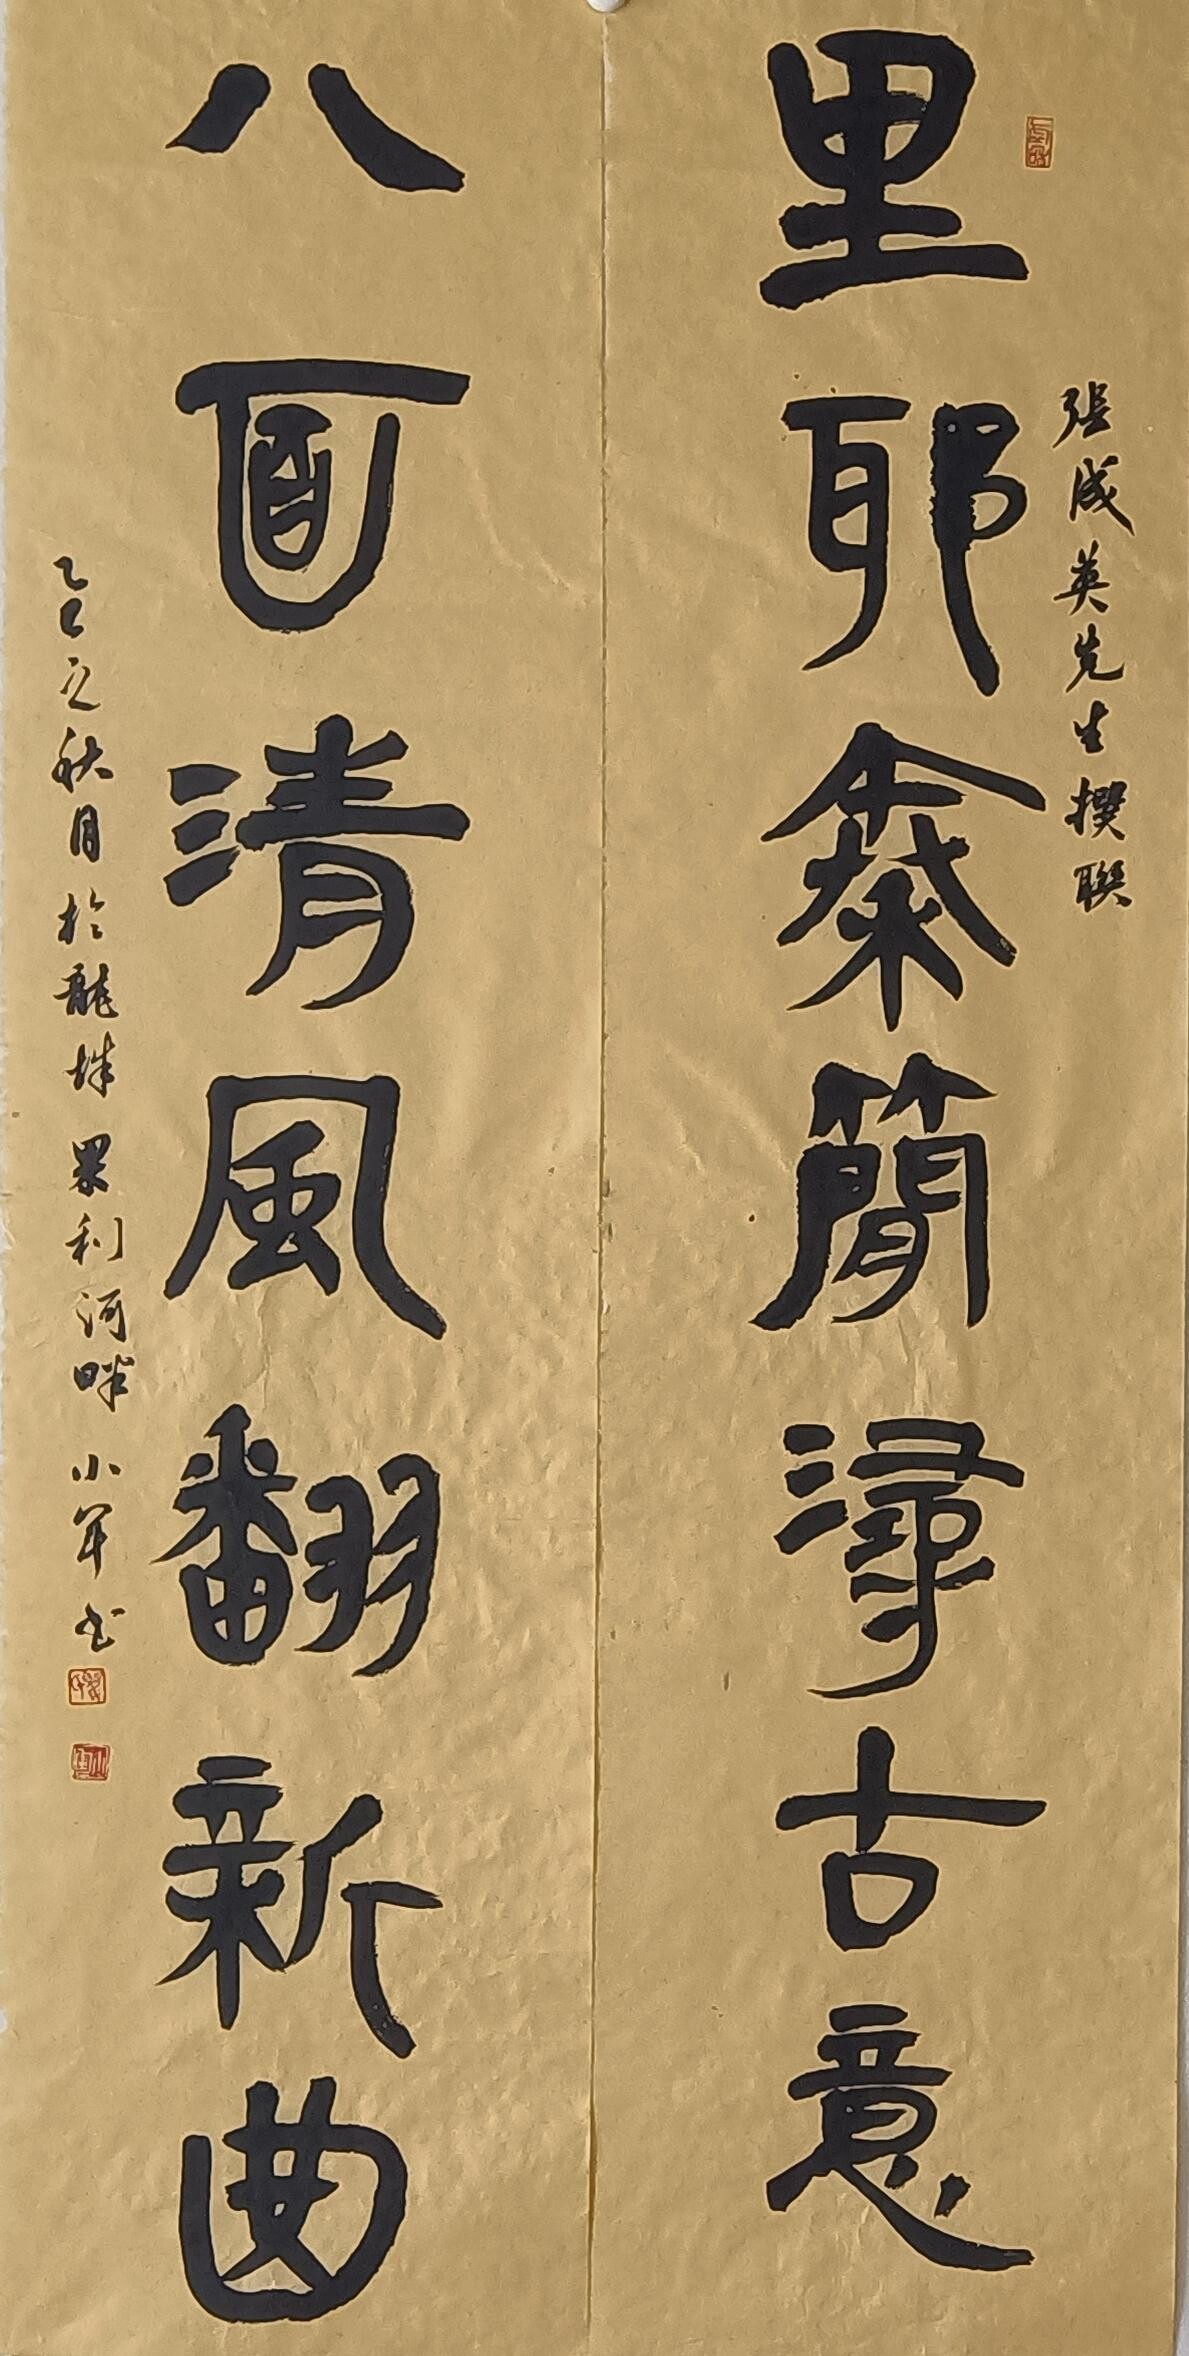 里耶秦簡潯古意
張成英先生撰聯
八面清風翻新曲
乙巳之秋月於龍城果利河畔小軍書